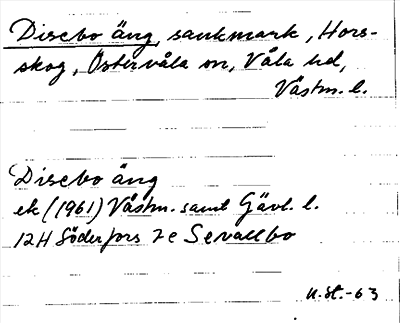 Disebo äng, sankmark, Hors-
skog, Östervåla sn, Våla hd,
Västm. l.
Disebo äng
ek (1961) Västm. samt Gävl. l.
12H Söderfors 7e Sevallbo
U.H.-63